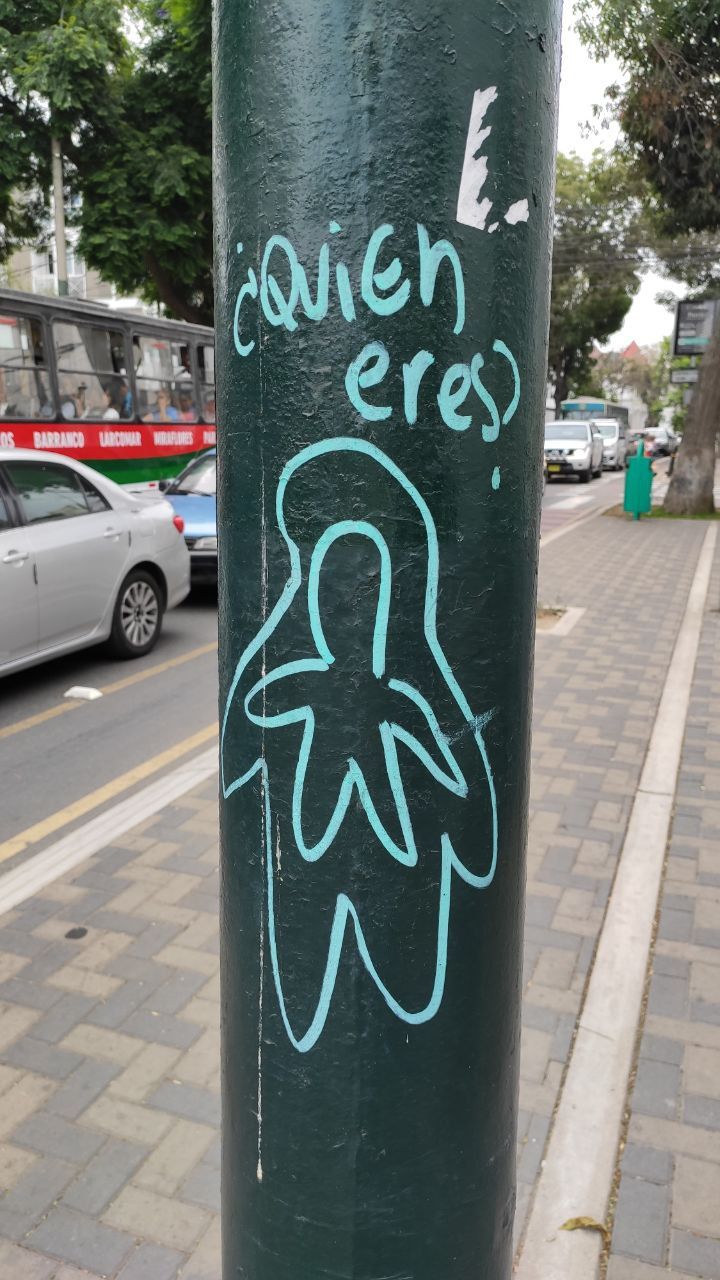 ¿Quien
eres?
BARRANCO LARCOMAR MIRAFLORES